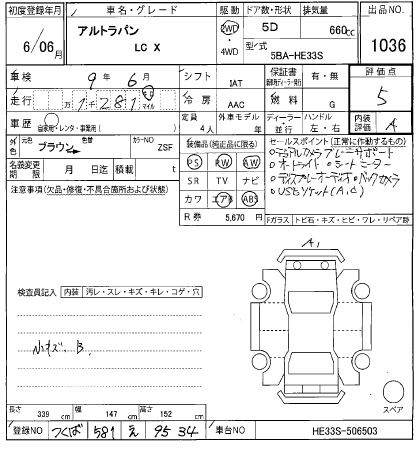 初度登録年月 車名・グレード 駆動 ドア数・形状 排気量 出品NO.
6/06月 アルトラパン 2WD 5D 660cc 1036
LC X 4WD 型式 5BA-HE33S
車検 9年 6月 シフト 1AT 保証書 有・無 評価点
走行 万 1281 マイル 冷房 AAC 燃料 G 5
車歴 自家用・レンタ・事業用( ) 定員 4人 外車モデル 年 ディーラー 並行 ハンドル 左・右 内装評価 A
外色 元色 ブラウン 色替 カラーNO ZSF 装備品(純正品に限る) セールスポイント(正常に作動するもの)
PS PW AW
名義変更期限 月 日 積載 t SR TV ナビ
注意事項(欠品・修復・不具合箇所および状態) カワ エアB ABS
○USBソケット(A,C)
R券 5,670円 Fガラス トビ石・キズ・ヒビ・ワレ・リペア跡
A1
検査員記入 内装 汚レ・スレ・キズ・キレ・コゲ・穴
小キズ. B.
スペア
長さ 339cm 幅 147cm 高さ 152cm
登録NO つくば 581 え 95 34 車台NO HE33S-506503